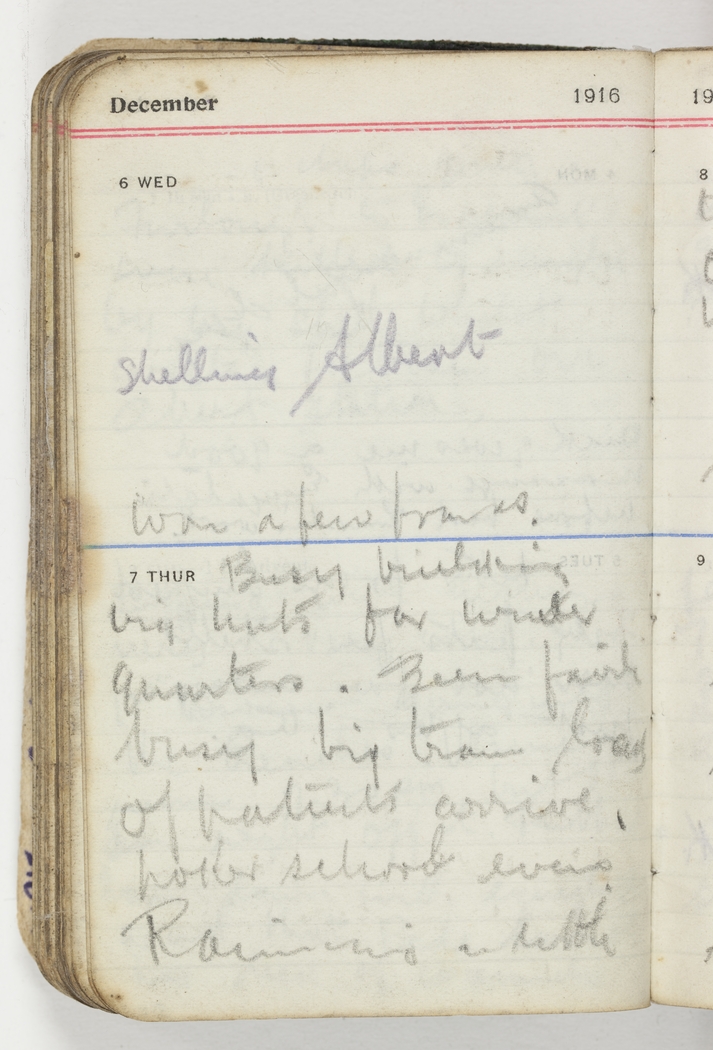 December 1916
6 WED
Shelling Albert
Won a few francs.
7 THUR Busy building
big huts for winter
quarters. Been fairly
busy big train load
of patients arrive,
poker school even
Raining a little